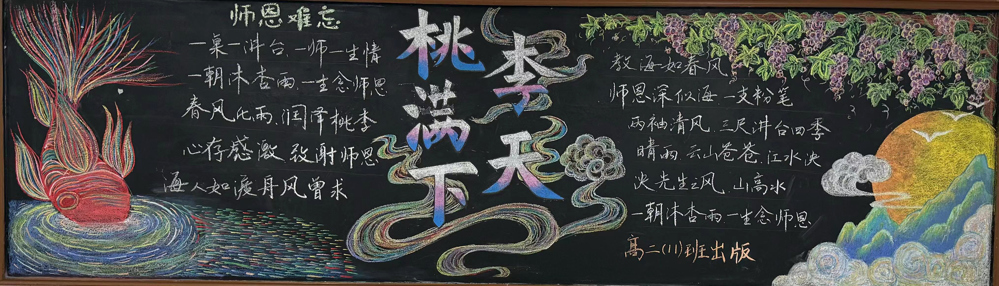 师恩难忘
一桌一讲台 一师一生情
一朝沐杏雨 一生念师恩
春风化雨 润泽桃李
心存感激 致谢师恩
海人如渡舟风曾求
桃李
满天
下
教海如春风
师恩深似海 一支粉笔
两袖清风 三尺讲台四季
晴雨 云山苍苍 江水泱
泱 先生之风 山高水
一朝沐杏雨一生念师恩
高二(11)班出版